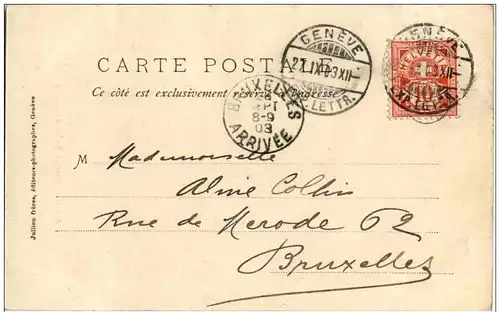 CARTE POSTALE
Ce côté est exclusivement réservé à l'adresse
GENÈVE
LETTR.
BRUXELLES
8-9
03
ARRIVÉE
GENÈVE
HELVETIA
10
M Mademoiselle
Aline Collin
Rue de Merode 62
Bruxelles
Jullien frères, éditeurs-photographes, Genève